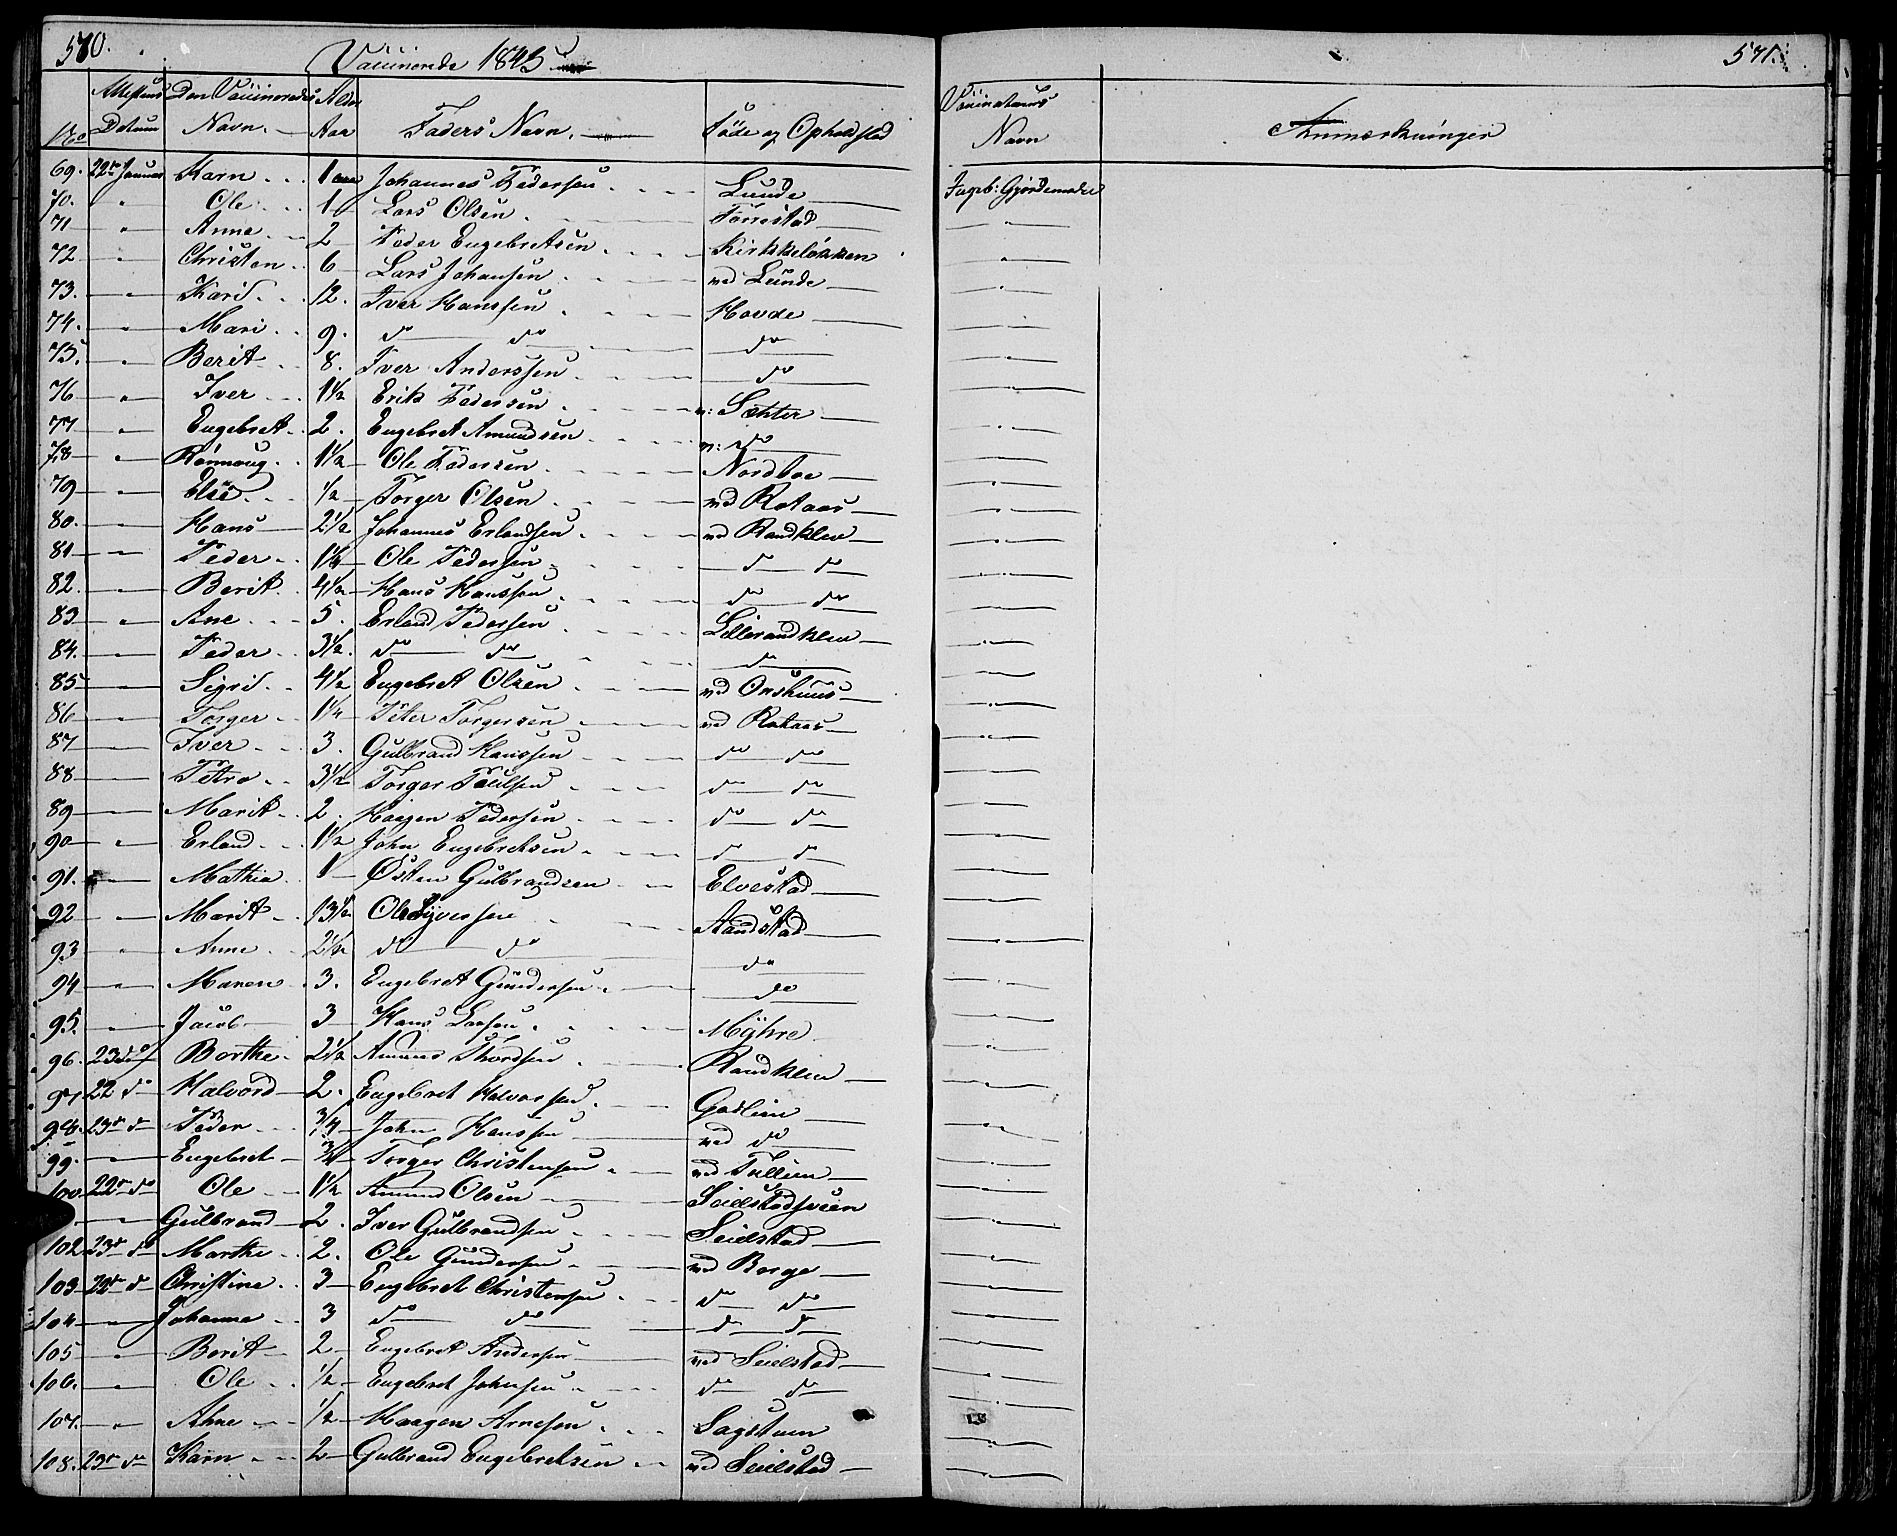 570.
Vaccinerede 1845
571.
No Attestens Datum Den Vaccineredes Navn. Alder Aar Faders Navn. Føde og Opholdsted Vaccinateurs Navn Anmærkninger
69. 22de Januar Karn 1 Johannes Pedersen Lunde Ingeb: Gjørdemoder
70. " Ole 1 Lars Olsen Forrestad "
71 " Anne 2 Peder Engebretsen Kirkkeløkken "
72 " Christen 6 Lars Johansen ved Lunde "
73. " Kari 12. Iver Hanssen Hovde "
74. " Mari 9. do do do "
75. " Berit 8. Iver Anderssen do "
76 " Iver 1½ Erik Pedersen v: Sæhter "
77 " Engebret 2. Engebret Amundsen v: do "
78 " Rønnoug 1½ Ole Pedersen Nordboe "
79 " Else ½ Torger Olsen ved Rotaas "
80. " Hans 2½ Johannes Erlandsen ved Randklev "
81 " Peder 1½ Ole Pedersen do do "
82. " Berit 4½ Hans Hanssen do do "
83 " Ane 5. Erland Pedersen Lillerandklev "
84. " Peder 3½. do do do "
85 " Sigrid 4½ Engebret Olsen ved Onshuus "
86 " Torger 1¼ Peter Torgersen ved Rotaas "
87 " Iver 3. Gulbrand Hanssen do do "
88 " Petro 3½ Torger Paulsen do do "
89 " Marit 2. Haagen Pedersen do do "
90 " Erland 1½ John Engebretsen do do "
91. " Mathia 1 Østen Gulbrandsen Elvestad "
92 " Marit 13½ Ole Syverssen Aandstad "
93 " Anne 2½ do do do "
94 " Maren 3. Engebret Gundersen do "
95. " Jacob 3 Hans Larsen Myhre "
96. 23de do Borthe 2½ Amund Thordsen Randklev "
97 22 do Halvord 2. Engebret Halvorsen Gadlien "
98. 23de do Peder ¾ John Hanssen ved do "
99. " Engebret ¾ Torger Christensen ved Tullien "
100 22de do Ole 1½ Amund Olsen Seielstadsveen "
" Gulbrand 2. Iver Gulbrandsen Seielstad "
102 23de do Marthe 2. Ole Gundersen ved Borge "
103 22de do Christine 3 Engebret Christensen do do "
104 " Johanne 3 do do do do "
105 " Berit 2 Engebret Andersen ved Seielstad "
106. " Ole ½ Engebret Johnsen do do "
107. " Ahne ½ Haagen Arnesen Sagstuen "
108. 23de do Karn 2 Gulbrand Engebretsen ved Seielstad "